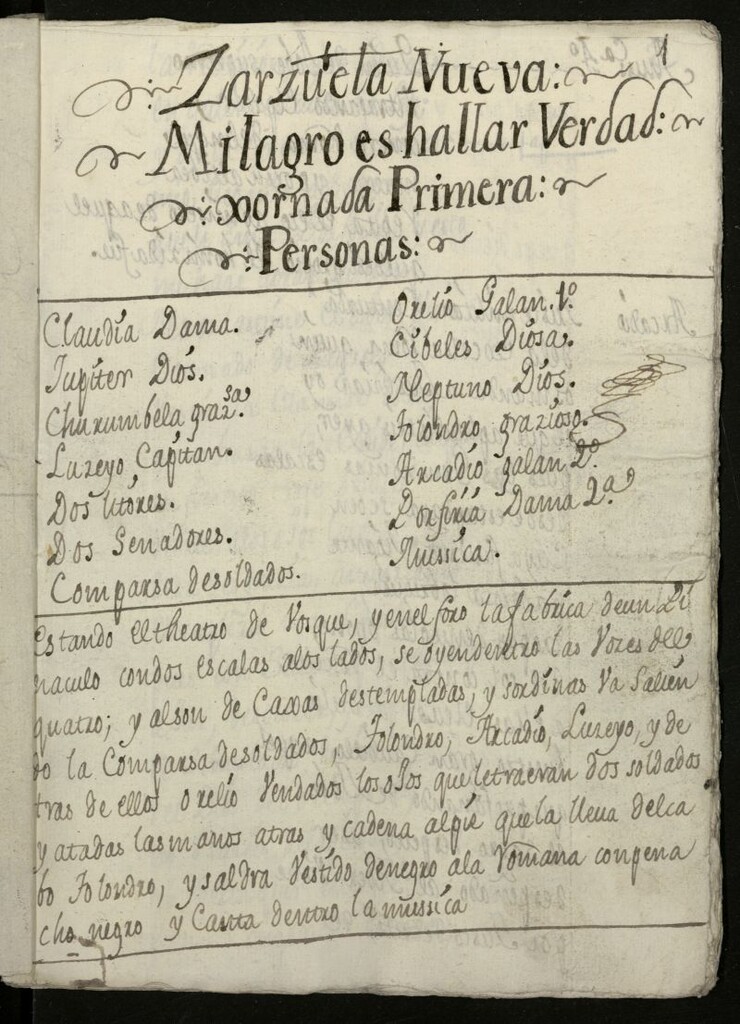 1
Zarzuela Nueva:
Milagro es hallar Verdad:
xornada Primera:
Personas:
Claudia Dama.
Jupiter Dios.
Churumbela graz.sa
Luzeyo Capitan.
Dos litores.
Dos Senadores.
Comparsa desoldados.
Orelio Galan. 1º
Cibeles Diosa.
Neptuno Dios.
Jolondro grazioso.
Arcadio galan 2º.
Porfiria Dama 2.a
Mussica.
Estando eltheatro de Vosque, yenelforo lafabrica deun Pi
naculo condos escalas alos lados, se oyendentro las Vozes del
quatro; y alson de Caxas destempladas, y sordinas Va Salien
do la Comparsa desoldados, Jolondro, Arcadio, Luzeyo, y de
tras de ellos Orelio Vendados losojos queletraeran dos soldados
y atadas lasmanos atras y cadena alpie quela lleva delca
bo Jolondro, y saldra Vestido denegro ala Romana conpena
cho negro y Canta dentro la mussica